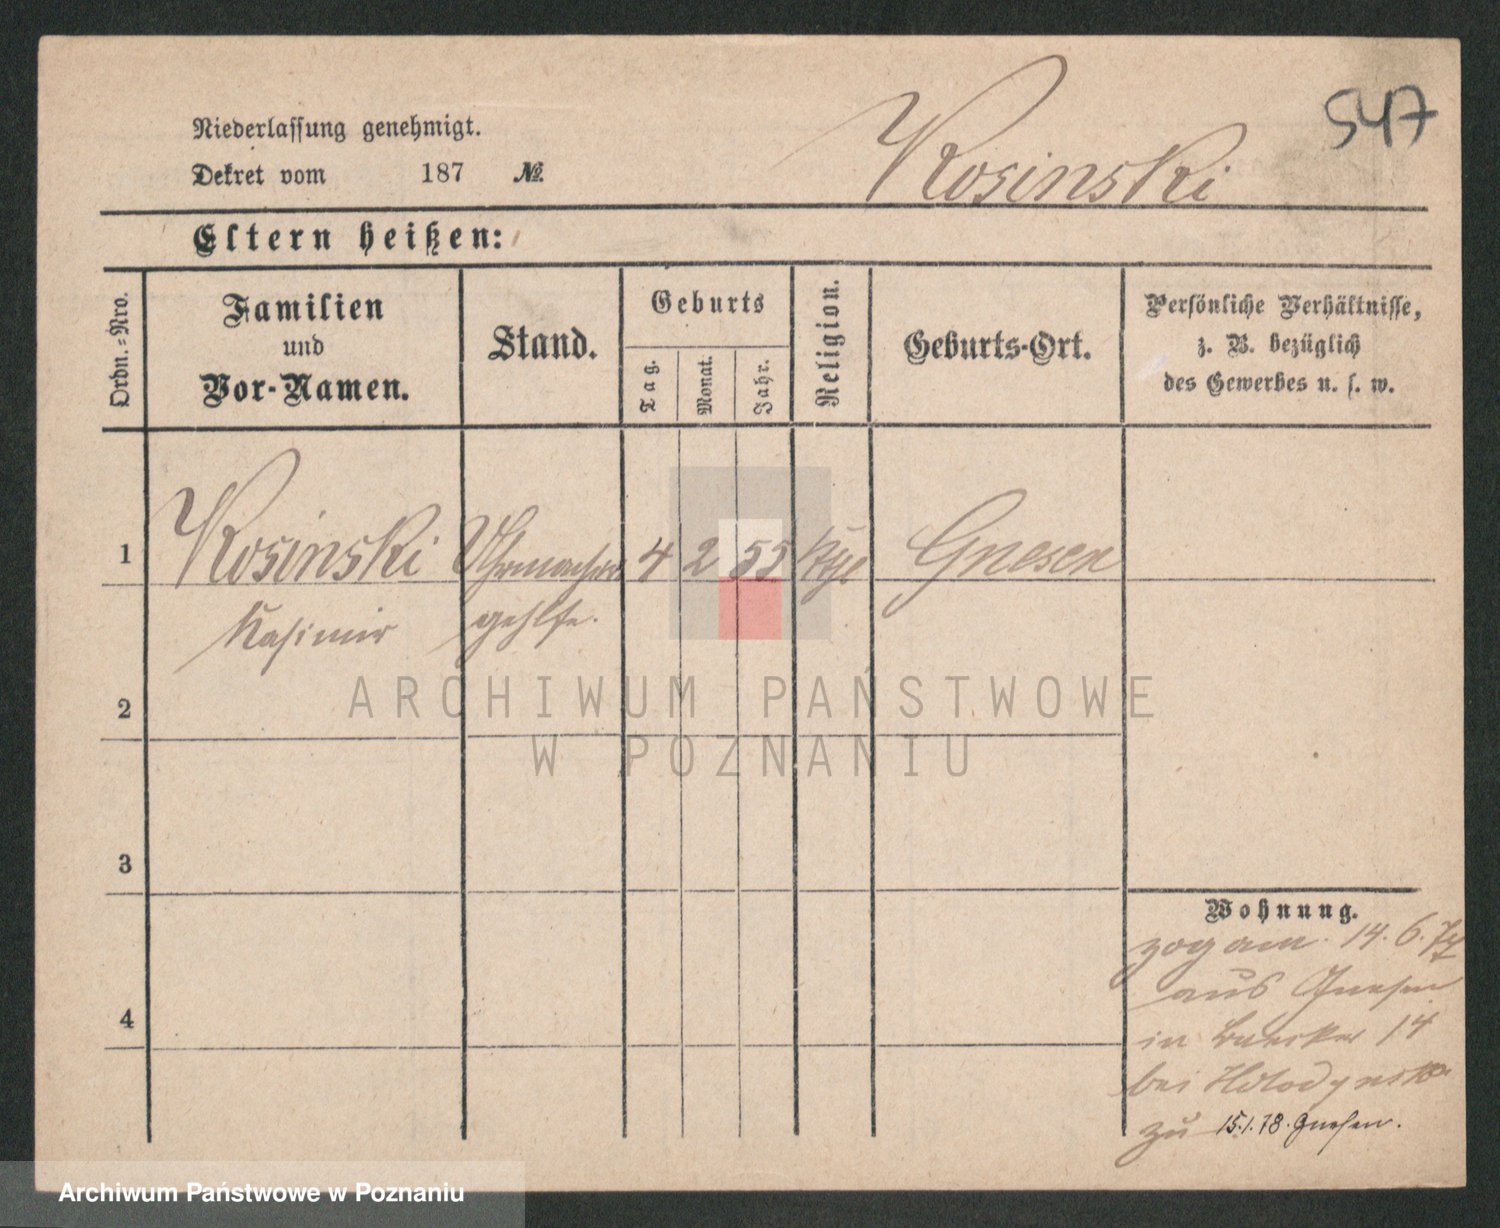 547
Kosinski
Niederlassung genehmigt.
Dekret vom 187 №
Eltern heißen:
Ordn.-Nro.
Familien
und
Vor-Namen.
Stand.
Geburts
Tag.
Monat.
Jahr.
Religion.
Geburts-Ort.
Persönliche Verhältnisse,
z. B. bezüglich
des Gewerbes u. s. w.
1 Kosinski Uhrmacher 4 2 55 Gnesen
Kasimir gehlfe.
2
3
4
Wohnung.
zog am 14. 6. 77
aus Gnesen
in 14
bei
zu 15.1.78. Gnesen.
ARCHIWUM PAŃSTWOWE
W POZNANIU
Archiwum Państwowe w Poznaniu